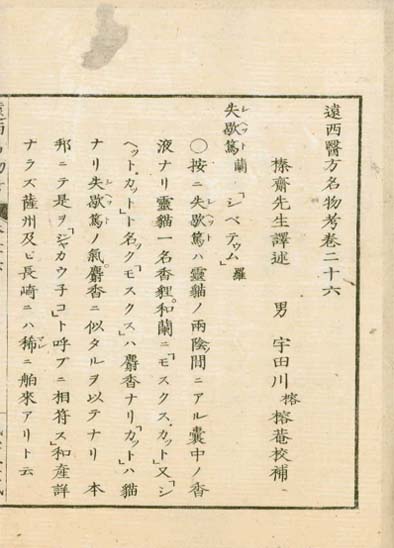 遠西醫方名物考卷二十六
榛齋先生譯述　男　宇田川榕 榕菴校補
失歇篤 蘭 「シベテウム」羅
〇按ニ失歇篤ハ靈猫ノ兩陰間ニアル囊中ノ香
液ナリ靈貓一名香貍。和蘭ニ「モスクス、カット」又「シ
ヘット、カット」ト名ク「モスクス」ハ麝香ナリ「カット」ハ貓
ナリ失歇篤ノ氣。麝香ニ似タルヲ以テナリ　本
邦ニテ是ヲ「ジャカウ子コ」ト呼ブニ相符ス」和産詳
ナラズ薩州及ビ長崎ニハ稀ニ舶來アリト云